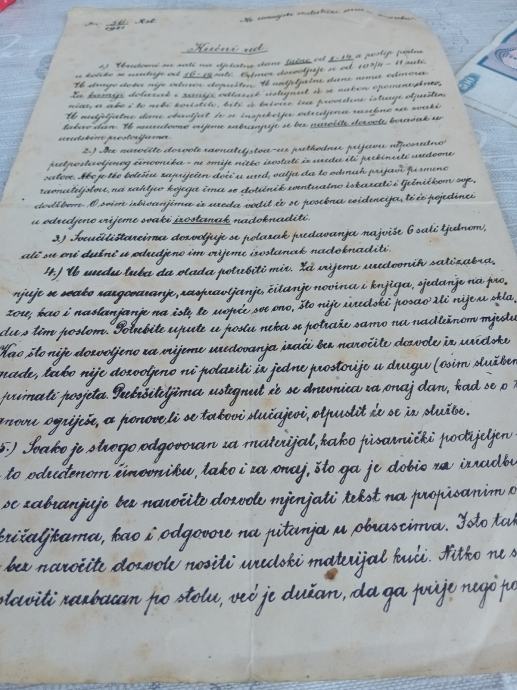 Kućni red
1) Uredovni su sati na djelatne dane tačno od 8-14 a poslije podne
u koliko se uređuje od 16-19 sati. Odmor dozvoljuje se od 10¾ - 11 sati.
U drugo doba nije odmor dopušten. U nedjeljne dane nema odmora.
Za kasniji dolazak i raniji odlazak ustegnut će se nakon opomene dnev-
nica, a ako i to nebi koristilo, biti će krivac iza provedene istrage otpušten.
U nedjeljne dane obavljat će se inspekcija određena zasebno za svaki
takav dan. U neuredovno vrijeme zabranjuje se bez naročite dozvole boravak u
uredskim prostorijama.
2.) Bez naročite dozvole ravnateljstva - uz prethodnu prijavu neposredno
pretpostavljenog činovnika - ne smije nitko izostati iz ureda ili prekinuti uredovne
satove. Ako je tko bolešću zapriječen doći u ured, valja da to odmah prijavi pismeno
ravnateljstvu, na zahtjev kojega ima se dotičnik eventualno iskazati i liječničkom svje-
dodžbom. O svim izbivanjima iz ureda vodit će se posebna evidencija, te će pojedinci
u određeno vrijeme svaki izostanak nadoknaditi.
3) Sveučilištarcima dozvoljuje se polazak predavanja najviše 6 sati tjedno,
ali su oni dužni u određeno im vrijeme izostanak nadoknaditi.
4.) U uredu treba da vlada potrebiti mir. Za vrijeme uredovnih sati zabra-
njuje se svako razgovaranje, raspravljanje, čitanje novina i knjiga, sjedanje na pro-
zore, kao i naslanjanje na iste, te uopće sve ono, što nije uredski posao ili nije u skla-
du s tim poslom. Potrebite upute u poslu neka se potraže samo na nadležnom mjestu
Kao što nije dozvoljeno za vrijeme uredovanja izaći bez naročite dozvole iz uredske
grade, tako nije dozvoljeno ni polaziti iz jedne prostorije u drugu (osim služben
primati posjeta. Prekršiteljima ustegnut će se dnevnica za onaj dan, kad se o
ogriješe, a ponove li se takovi slučajevi, otpustit će se iz službe.
5.) Svako je strogo odgovoran za materijal, kako pisarnički podijeljen
to određenom činovniku, tako i za onaj, što ga je dobio za izradbu
se zabranjuje bez naročite dozvole mjenjati tekst na propisanim o
križaljkama, kao i odgovore na pitanja u obrascima. Isto tak
bez naročite dozvole nositi uredski materijal kući. Nitko ne s
staviti razbacan po stolu, već je dužan, da ga prije nego po